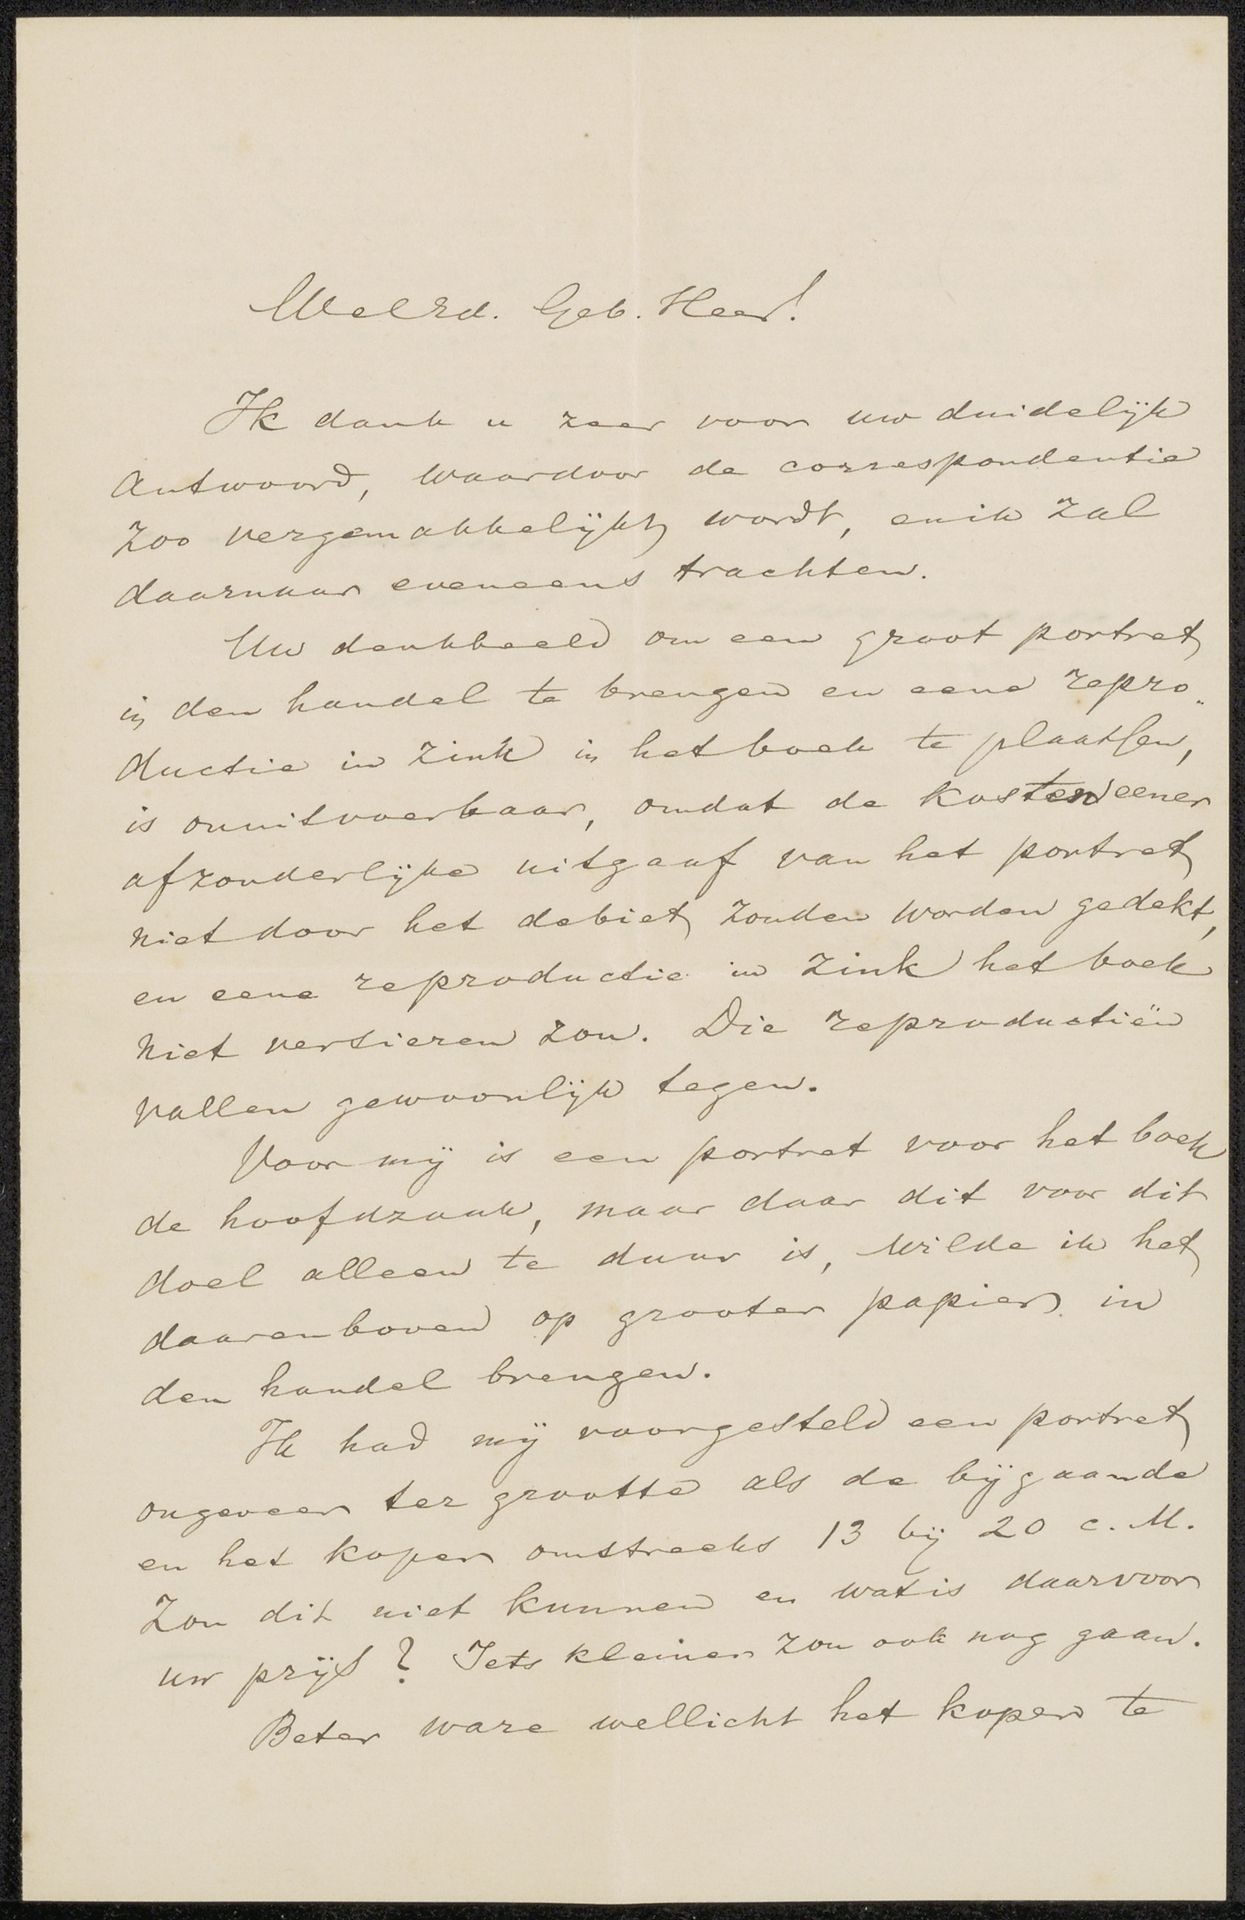 WelEd. Geb. Heer!
Ik dank u zeer voor uw duidelijk
antwoord, waardoor de correspondentie
zoo vergemakkelijkt wordt, en ik zal
daarnaar eveneens trachten.
Uw denkbeeld om een groot portret
in den handel te brengen en eene repro-
ductie in zink in het boek te plaatsen,
is onuitvoerbaar, omdat de kosten eener
afzonderlijke uitgaaf van het portret
niet door het debiet zouden worden gedekt,
en eene reproductie in zink het boek
niet versieren zou. Die reproductiën
vallen gewoonlijk tegen.
Voor mij is een portret voor het boek
de hoofdzaak, maar daar dit voor dit
doel alleen te duur is, wilde ik het
daarenboven op grooter papier in
den handel brengen.
Ik had mij voorgesteld een portret
ongeveer ter grootte als de bijgaande
en het koper omstreeks 13 bij 20 c. M.
Zou dit niet kunnen en wat is daarvoor
uw prijs? Iets kleiner zou ook nog gaan.
Beter ware wellicht het koper te